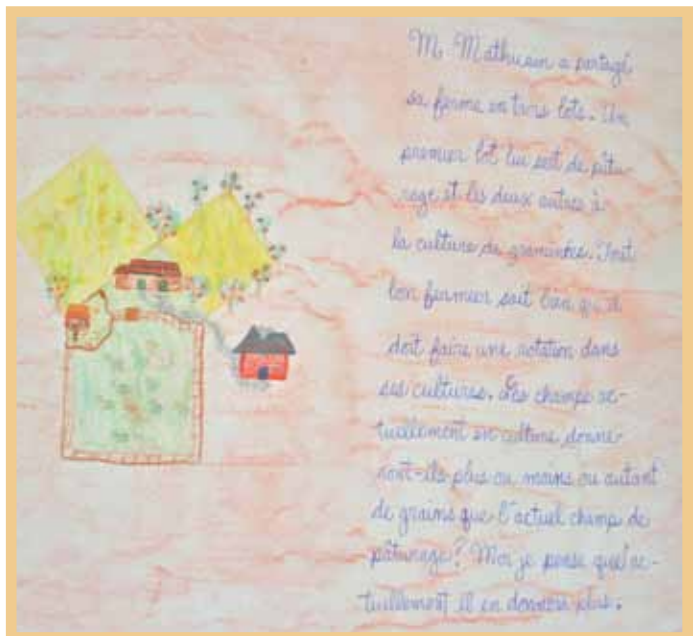 M. Mathurin a partagé
sa ferme en trois lots. Un
premier lot lui sert de pâtu-
rage et les deux autres à
la culture de graminées. Tout
bon fermier sait bien qu'il
doit faire une rotation dans
ses cultures. Les champs ac-
tuellement en culture donne-
ront-ils plus ou moins ou autant
de grains que l'actuel champ de
pâturage? Moi je pense qu'ac-
tuellement il en donnera plus.